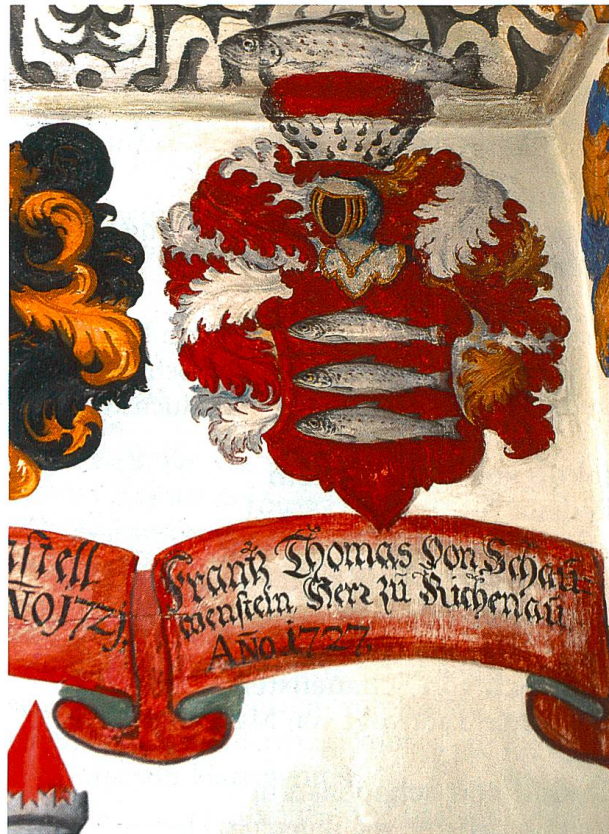 stell
NO 1721.
Frantz Thomas Von Schau=
wenstein, Herr zu Richenau
Año 1727.